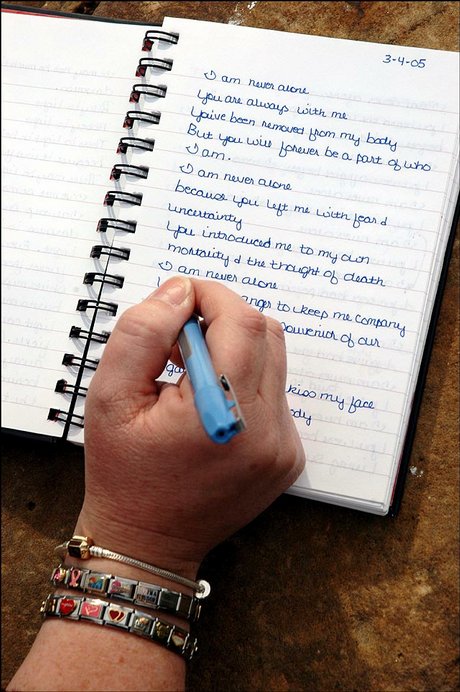 3-4-05
I am never alone
You are always with me
You've been removed from my body
But you will forever be a part of who
I am.
I am never alone
because you left me with fear &
uncertainty
You introduced me to my own
mortality & the thought of death
I am never alone
to keep me company
souvenir of our
kiss my face